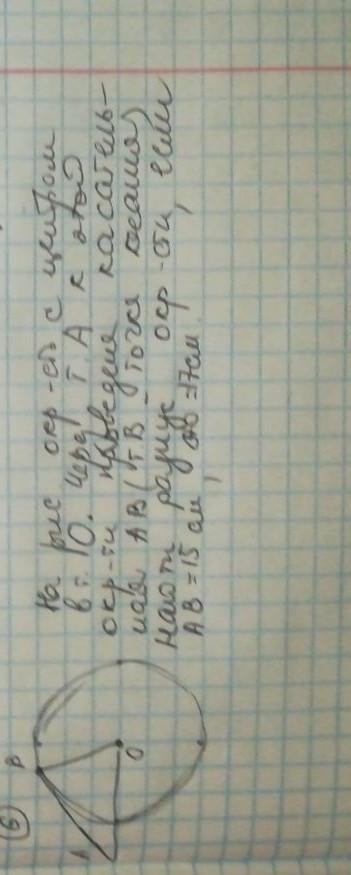 6
B
A
O
На рис окр-ть с центром
в т. О. Через т. А к этой
окр-ти проведена касатель-
ная АВ (т В - точка касания)
Найти радиус окр-сти, если
АВ = 15 см, =17см.